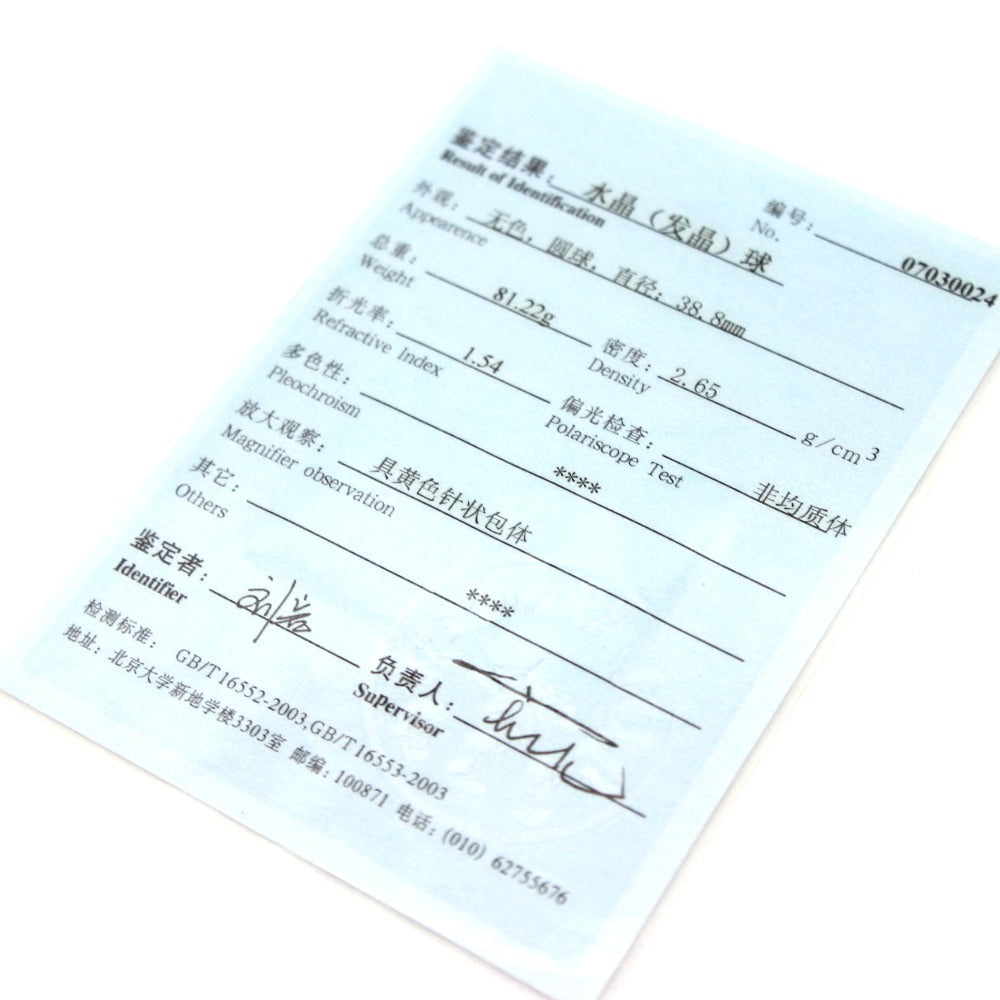 鉴定结果: 水晶（发晶）球 编号: 07030024
Result of Identification No.
外观: 无色，圆球，直径：38.8mm
Appearence
总重: 81.22g 密度: 2.65 g/cm3
Weight Density
折光率: 1.54 偏光检查: 非均质体
Refractive Index Polariscope Test
多色性: ****
Pleochroism
放大观察: 具黄色针状包体
Magnifier observation
其它: ****
Others
鉴定者: 负责人:
Identifier SuPervisor
检测标准: GB/T16552-2003,GB/T16553-2003
地址: 北京大学新地学楼3303室 邮编: 100871 电话: (010) 62755676